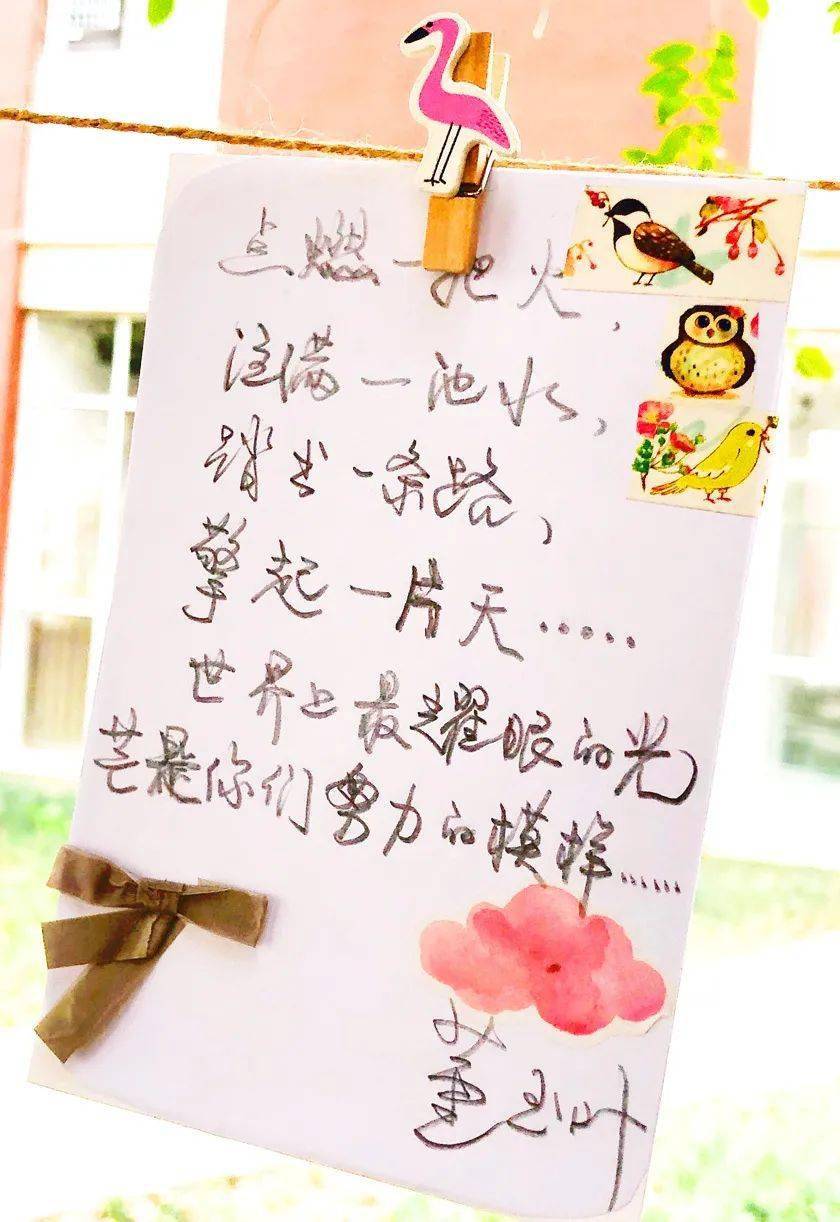 点燃一把火，
注满一池水，
踏出一条路，
擎起一片天……
世界上最耀眼的光
芒是你们努力的模样……
董玉叶